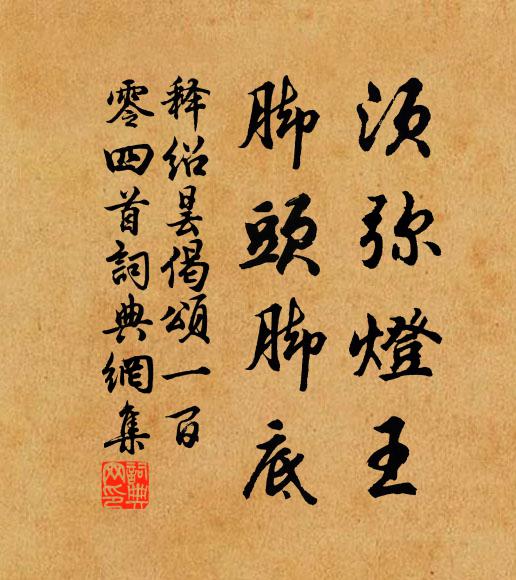 须弥燈王
脚頭脚底
释绍昙偈颂一百
零四首詞典網集
詞典网印